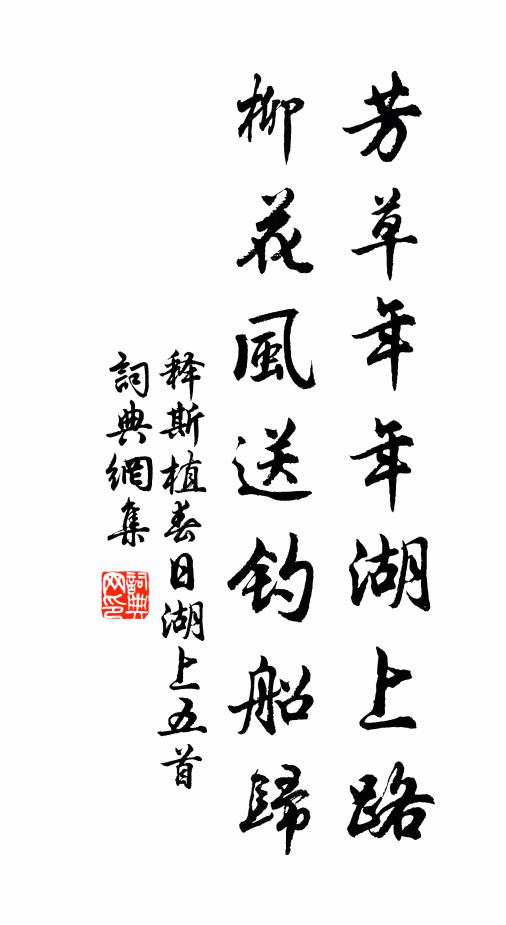 芳草年年湖上路
柳花風送钓船歸
释斯植春日湖上五首
詞典網集
詞典网印